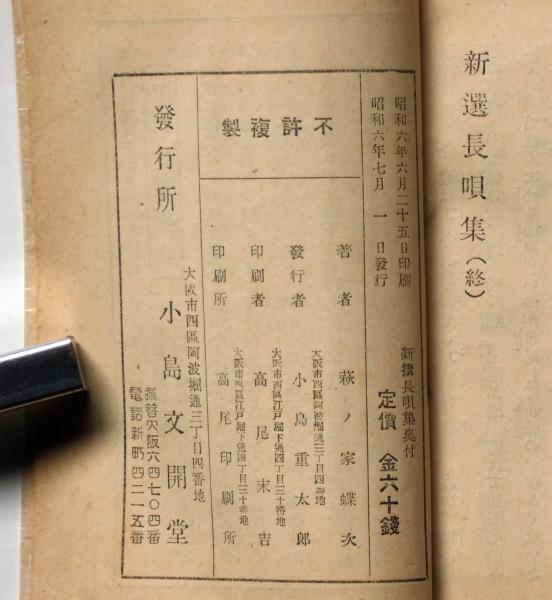 新選長唄集(終)
昭和六年六月二十五日印刷
昭和六年七月一日發行
新撰長唄集奥付
定價 金六十錢
不許複製
著者 萩ノ家蝶次
大阪市西區阿波堀通三丁目四番地
發行者 小島重太郎
大阪市西區江戸堀下通四丁目三十番地
印刷者 高尾末吉
大阪市西區江戸堀下通四丁目三十番地
印刷所 高尾印刷所
發行所
大阪市西區阿波堀通三丁目四番地
小島文開堂
振替大阪六四七〇四番
電話新町四二一五番